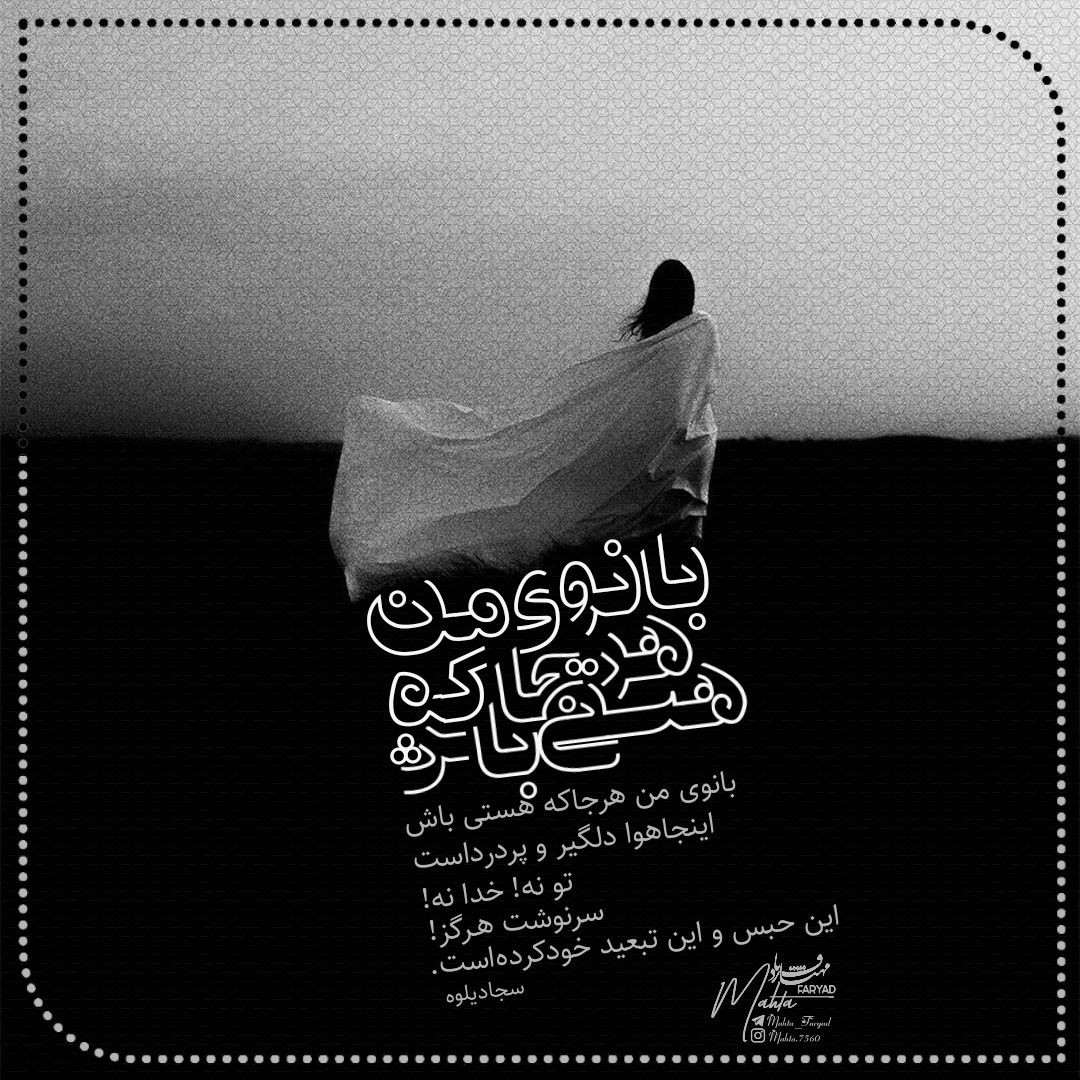 بانوی من
هرجاکه
هستی باش
بانوی من هرجاکه هستی باش
اینجاهوا دلگیر و پردرداست
تو نه! خدا نه!
سرنوشت هرگز!
این حبس و این تبعید خودکرده‌است.
سجادیلوه
مهتا فریاد
Mahta
FARYAD
Mahta_Faryad
Mahta.7560